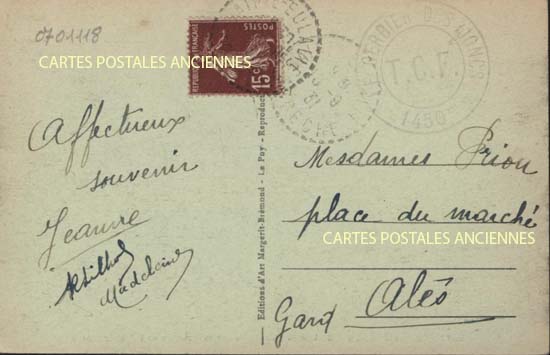 0701118
CARTES POSTALES ANCIENNES
REPUBLIQUE FRANÇAISE
POSTES
15c
T.C.F.
1450
Affectueux
souvenir
Jeanne
Madeleine
Editions d'Art Margerit-Brémond - Le Puy - Reproduc
Mesdames Prion
place du marché
CARTES POSTALES ANCIENNES
Gard Alès